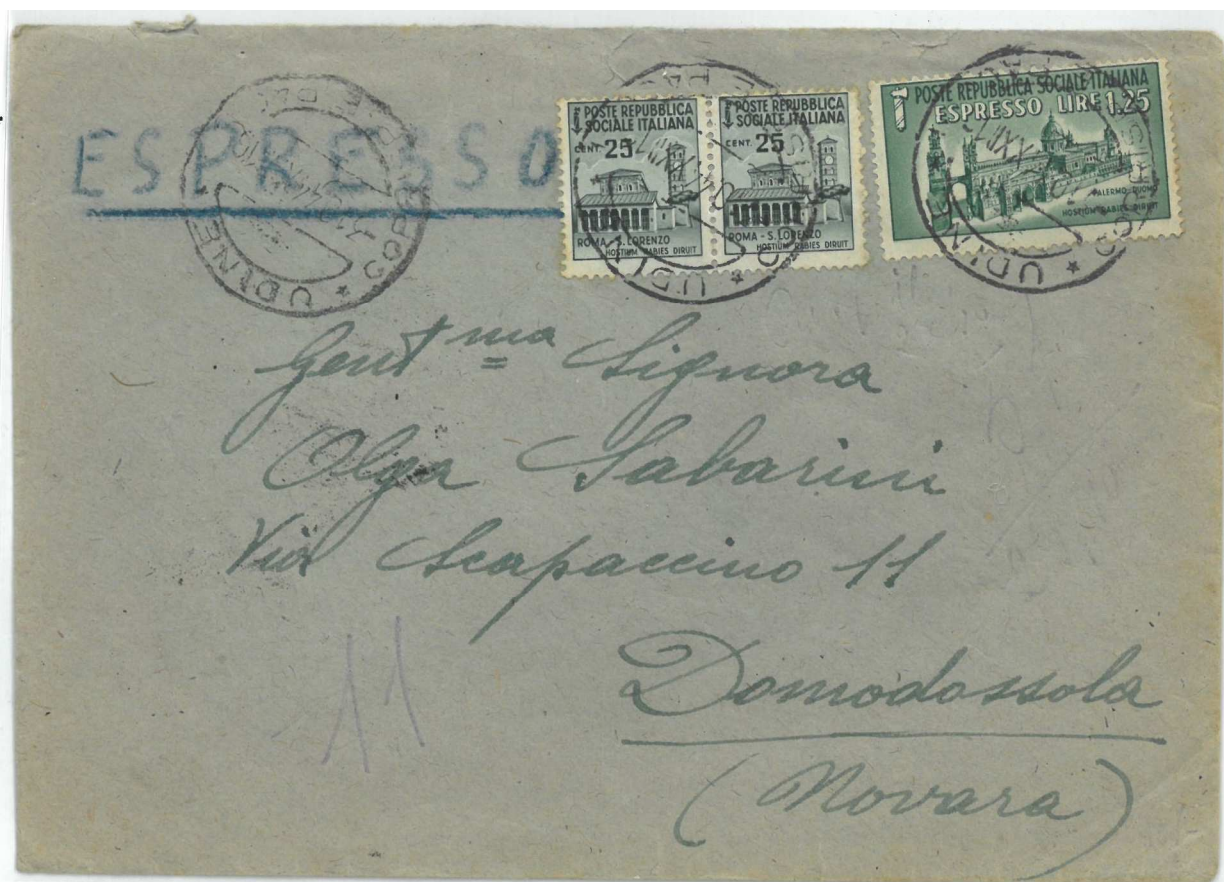 ESPRESSO
POSTE REPUBBLICA
SOCIALE ITALIANA
CENT. 25
ROMA - S. LORENZO
HOSTIUM RABIES DIRUIT
POSTE REPUBBLICA
SOCIALE ITALIANA
CENT. 25
ROMA - S. LORENZO
HOSTIUM RABIES DIRUIT
POSTE REPUBBLICA SOCIALE ITALIANA
ESPRESSO LIRE 1.25
PALERMO-DUOMO
HOSTIUM RABIES DIRUIT
UDINE
UDINE
UDINE
Gent ma = Signora
Olga Sabarini
Via Scapaccino 11
Domodossola
(Novara)
11